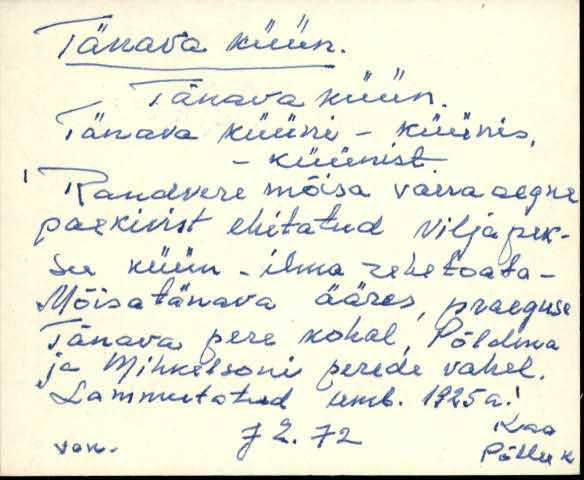 Tänava küün.
Tänava küün.
Tänava küüni - küünis,
- küünist.
Randvere mõisa vanaaegne
paekivist ehitatud viljapek-
su küün - ilma rehetoata -
Mõisatänava ääres, praeguse
Tänava pere kohal, Põldma
ja Mihkelsoni perede vahel.
Lammutatud umb. 1925 a.
72
Põllu k